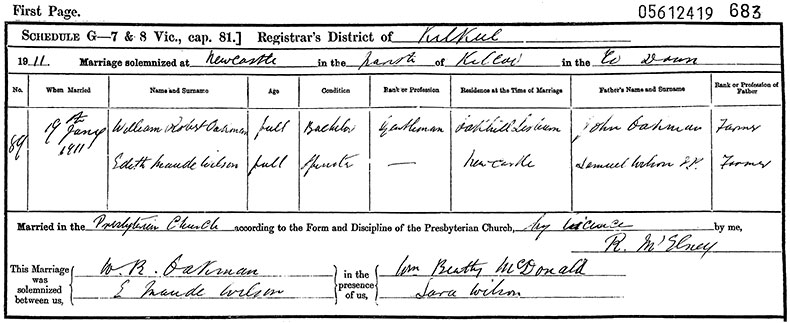 First Page.
05612419 683
SCHEDULE G—7 & 8 Vic., cap. 81.] Registrar's District of Kilkeel
1911. Marriage solemnized at Newcastle in the parish of Kilcoo in the Co Down
No. When Married Name and Surname Age Condition Rank or Profession Residence at the Time of Marriage Father's Name and Surname Rank or Profession of Father
89 19th Jany 1911 William Robert Oakman full Bachelor Gentleman Lisburn John Oakman Farmer
Edith Maude Wilson full Spinster — Newcastle Samuel Wilson Farmer
Married in the Presbyterian Church according to the Form and Discipline of the Presbyterian Church, by licence by me,
R. McElney
This Marriage was solemnized between us,
W. R. Oakman
E Maude Wilson
in the presence of us,
Wm Beatty McDonald
Sara Wilson